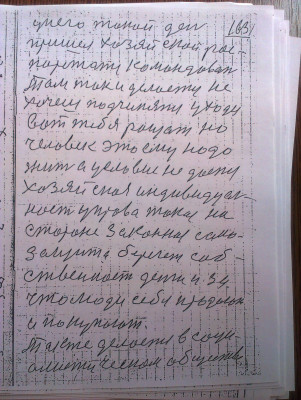 у него такой деп (63)
пришел хозяйской рас-
порядити командован
Там так и делается не
хочеш подчиняти уходи
Вот тебя рощат но
человек этому надо
жит а условие не дают
Хозяйская индивидуал-
ност управа такая на
стороне законная само-
защита берегет соб-
ственност дети и за
что люди себя продают
и покупают.
Также делается в соци-
алистическом обществе